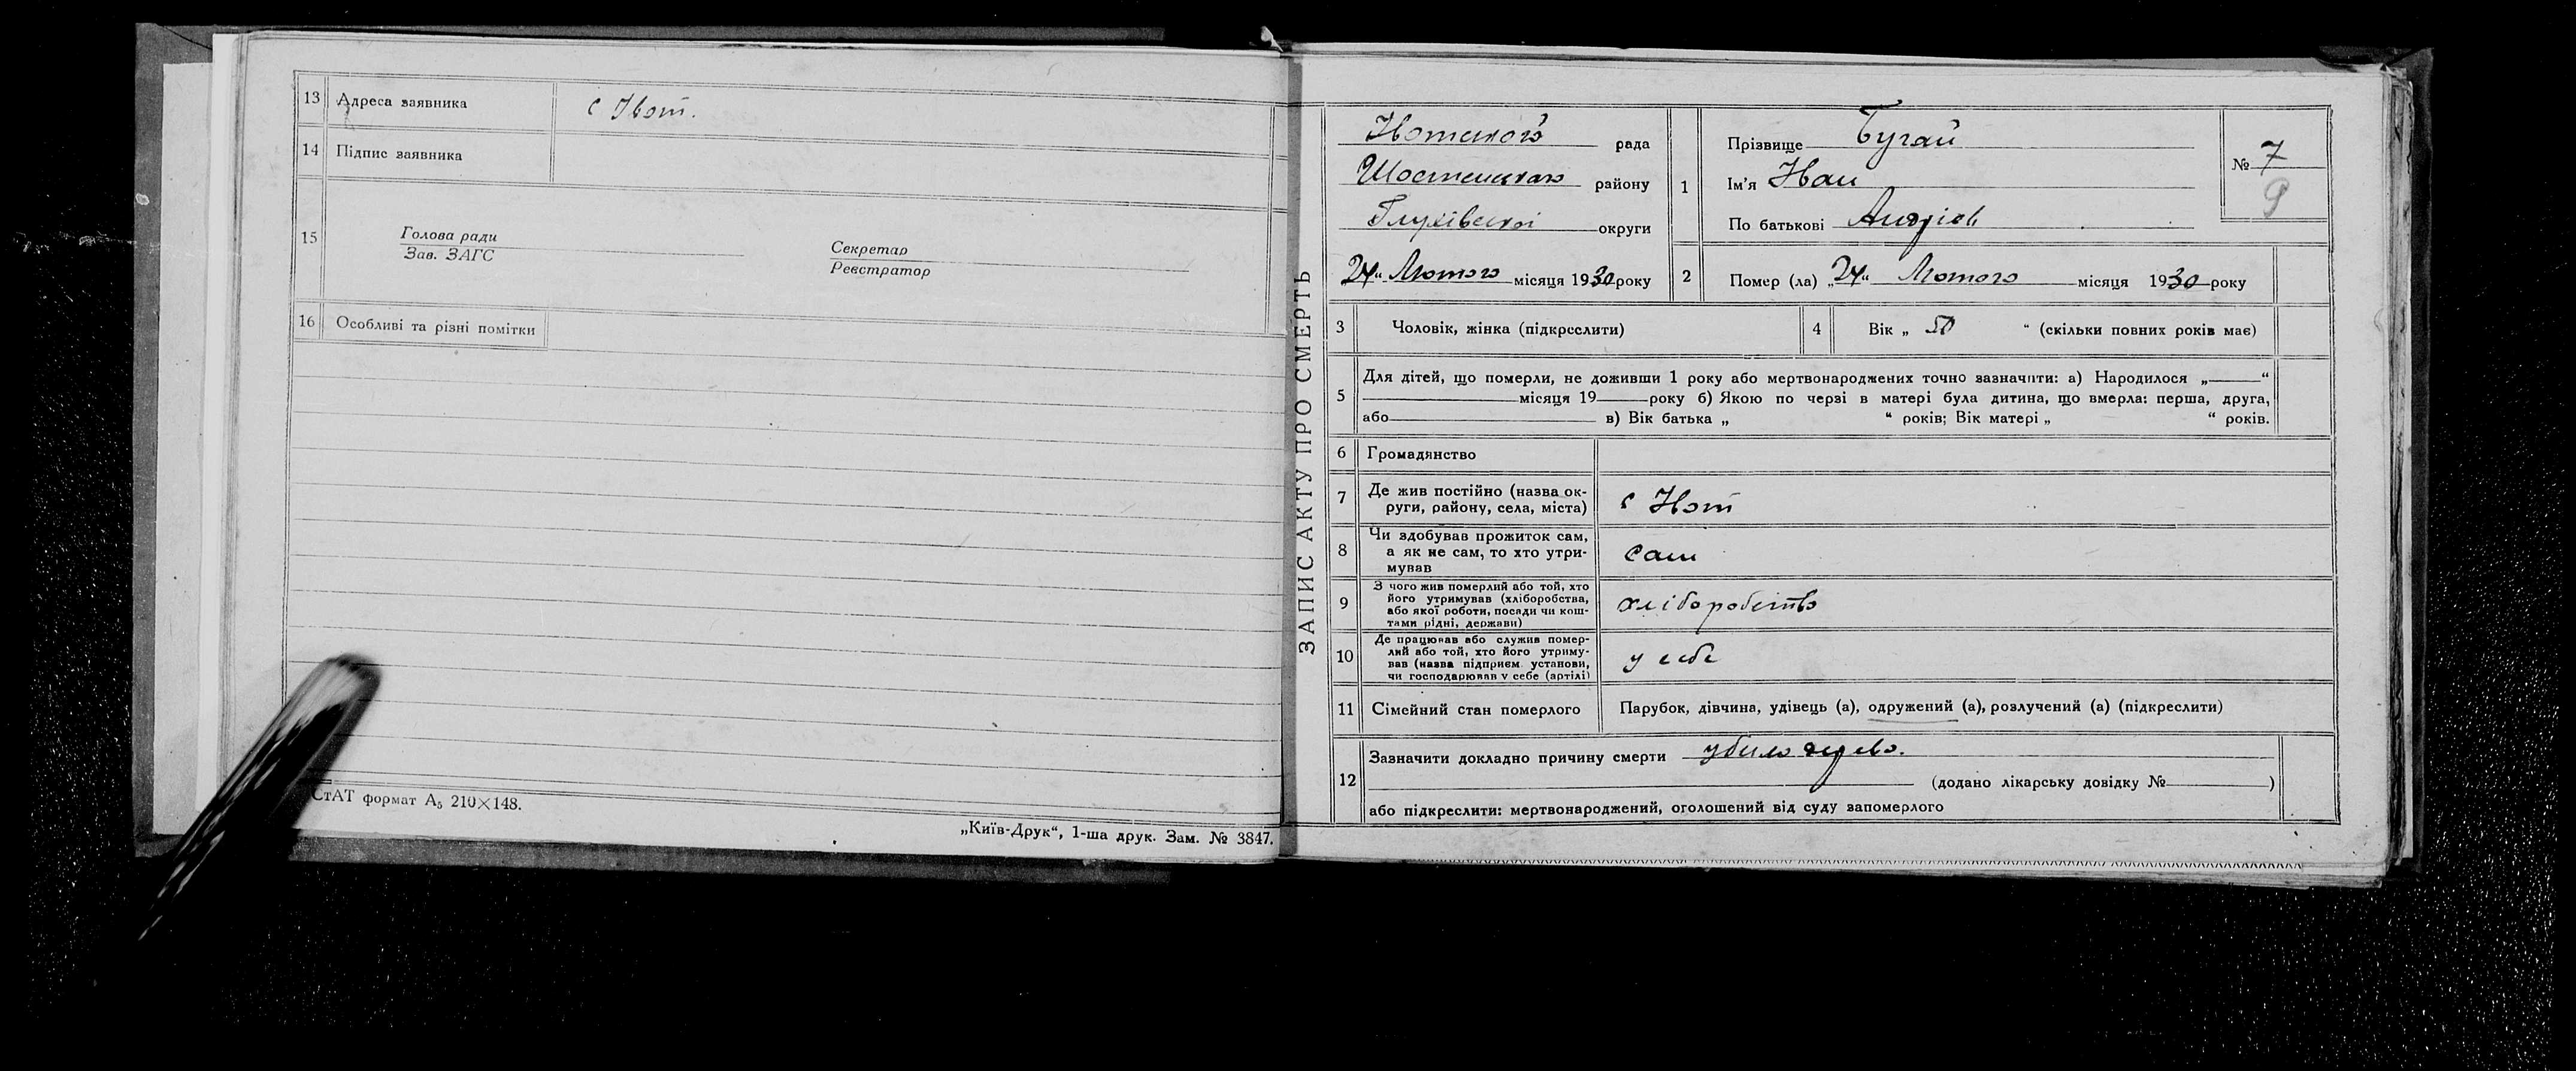 13 Адреса заявника с Ивот.
14 Підпис заявника
15 Голова ради
Зав. ЗАГС
Секретар
Реєстратор
16 Особливі та різні помітки
СтАТ формат А5 210×148.
„Київ-Друк“, 1-ша друк. Зам. № 3847.
ЗАПИС АКТУ ПРО СМЕРТЬ
Ивотського рада
Шостенського району
Глухівської округи
24“ Лютого місяця 1930 року
1 Прізвище Бугай
Ім'я Иван
По батькові Андріев
№ 7
9
2 Помер (ла) „24“ Лютого місяця 1930 року
3 Чоловік, жінка (підкреслити)
4 Вік „ 50 “ (скільки повних років має)
5 Для дітей, що померли, не доживши 1 року або мертвонароджених точно зазначити: а) Народилося „ “
місяця 19 року б) Якою по черзі в матері була дитина, що вмерла: перша, друга,
або в) Вік батька „ “ років; Вік матері „ “ років.
6 Громадянство
7 Де жив постійно (назва ок-
руги, району, села, міста) с Ивот
8 Чи здобував прожиток сам,
а як не сам, то хто утри-
мував сам
9 З чого жив померлий або той, хто
його утримував (хліборобства,
або якої роботи, посади чи кош-
тами рідні, держави) хліборобство
10 Де працював або служив помер-
лий або той, хто його утриму-
вав (назва підприєм. установи,
чи господарював у себе (артілі) у себе
11 Сімейний стан померлого Парубок, дівчина, удівець (а), одружений (а), розлучений (а) (підкреслити)
12 Зазначити докладно причину смерти убило дерево.
(додано лікарську довідку № )
або підкреслити: мертвонароджений, оголошений від суду запомерлого